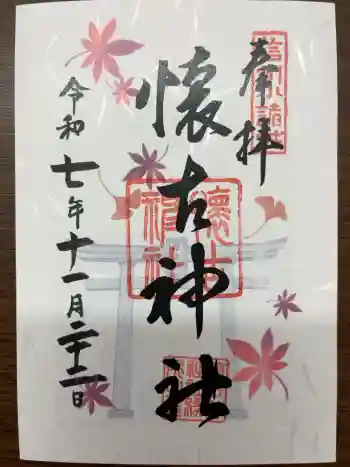 奉拝
信州小諸城
懐古神社
懐古
神社
令和七年十一月二十二日